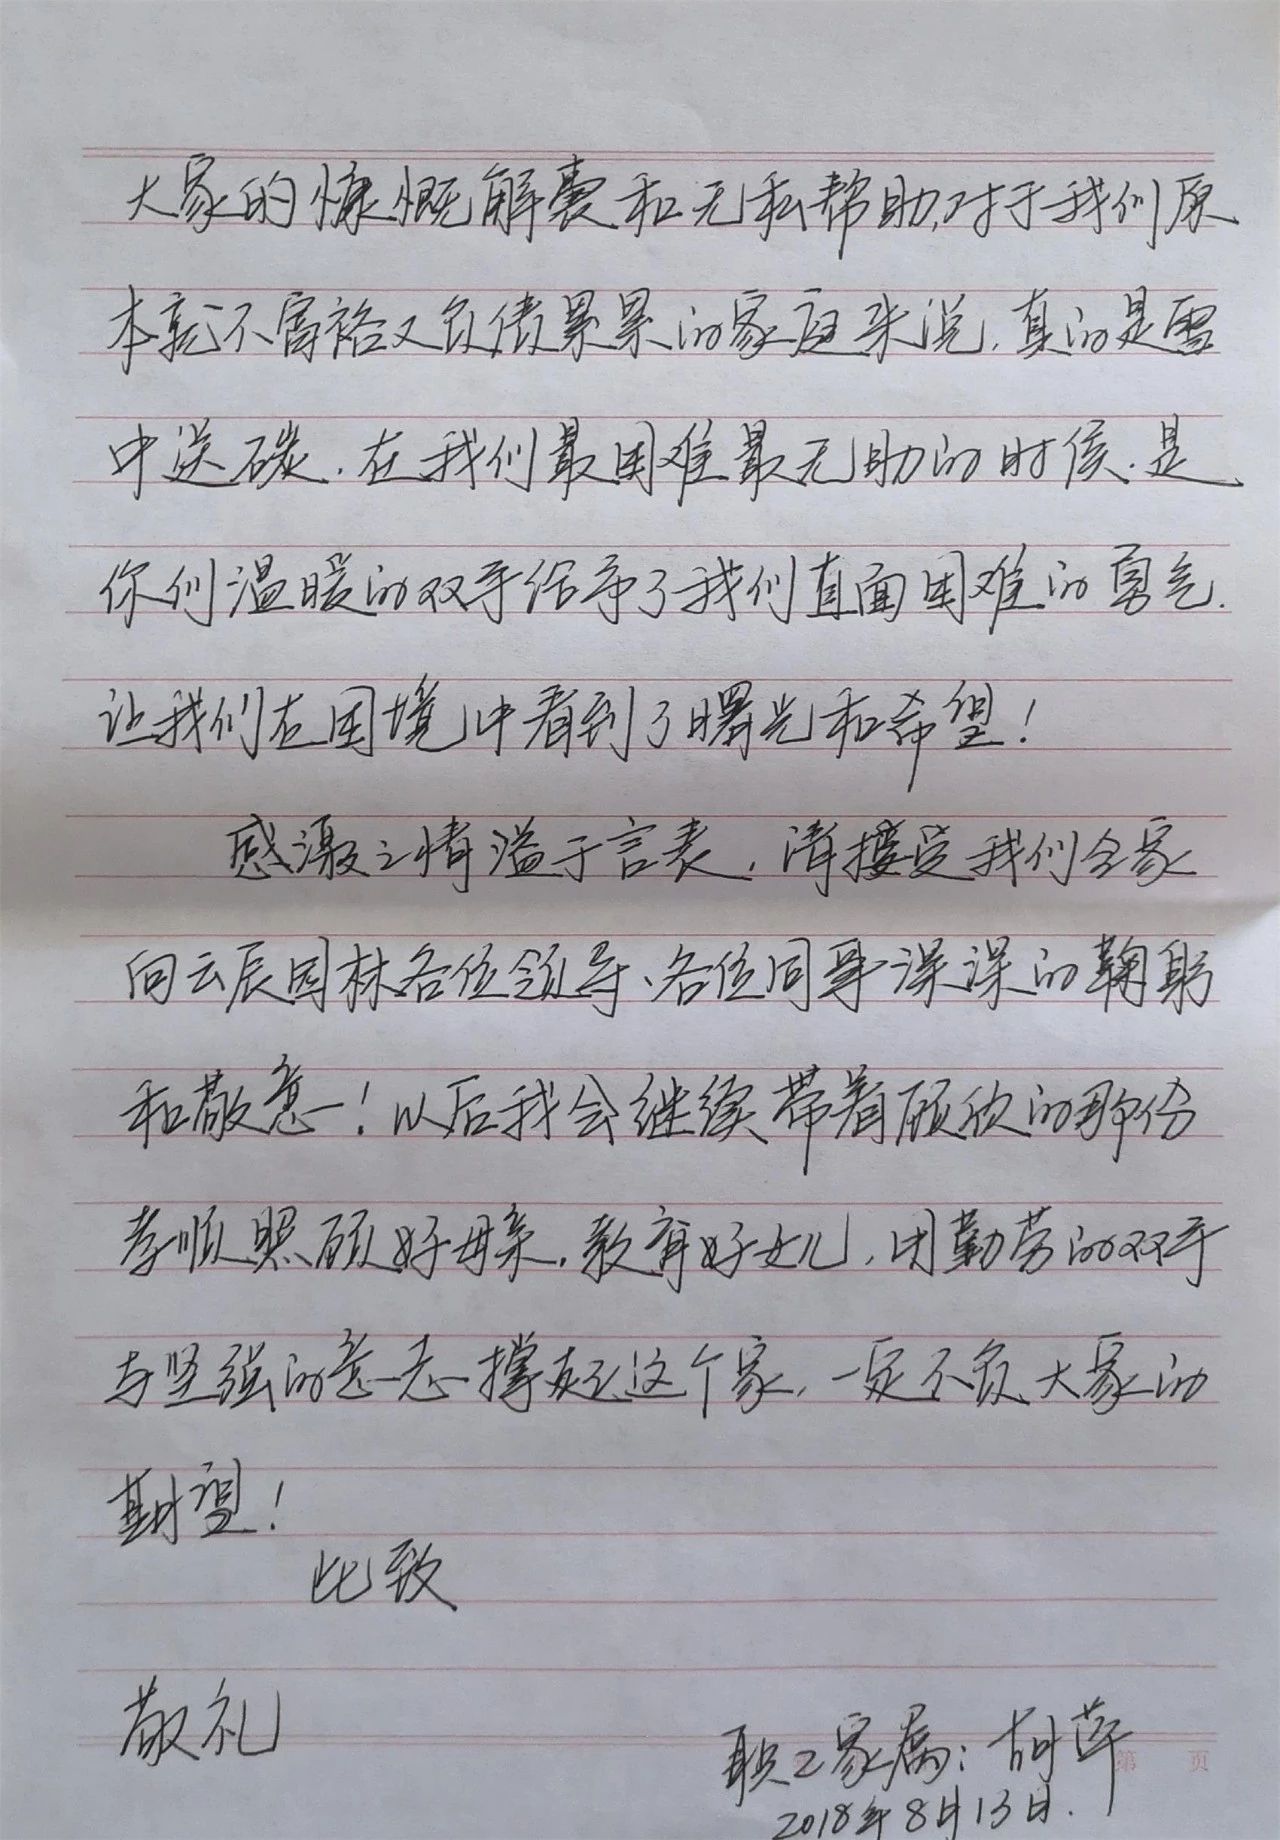 大家的慷慨解囊和无私帮助,对于我们原
本就不富裕又负债累累的家庭来说,真的是雪
中送碳.在我们最困难最无助的时候.是
你们温暖的双手给予了我们直面困难的勇气.
让我们在困境中看到了曙光和希望!
感激之情溢于言表,请接受我们全家
向云辰园林各位领导、各位同事深深的鞠躬
和敬意!以后我会继续带着顾欣的那份
孝顺照顾好母亲.教育好女儿,用勤劳的双手
与坚强的意志撑起这个家,一定不负大家的
期望!
此致
敬礼
职工家属:胡萍
第 页
2018年8月13日.